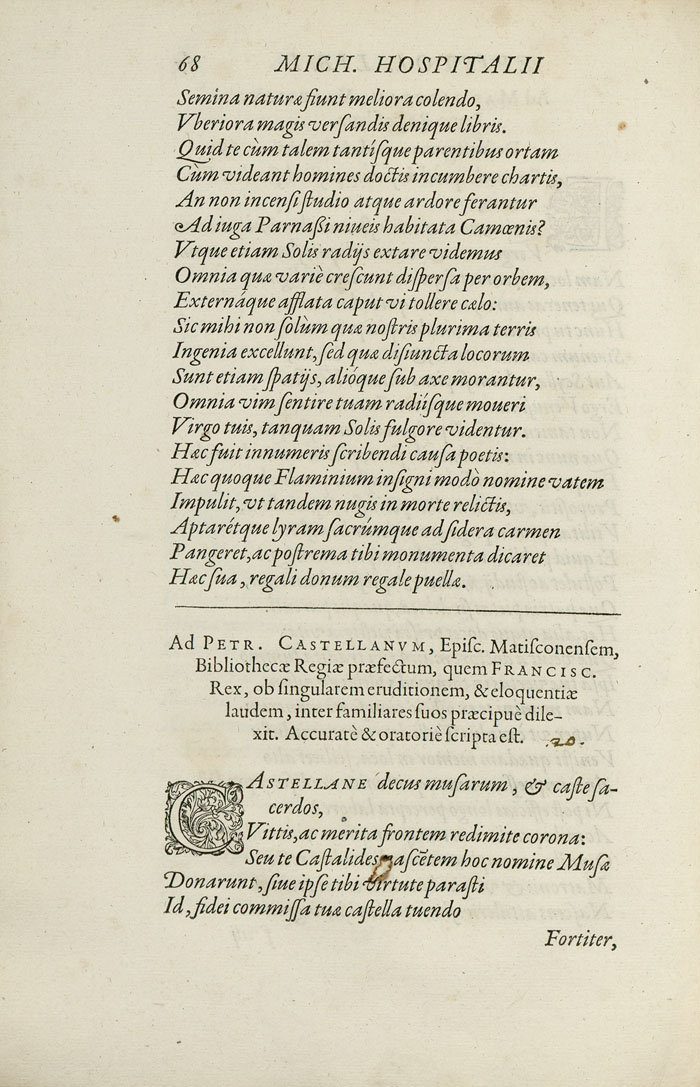 68 MICH. HOSPITALII
Semina naturæ fiunt meliora colendo,
Vberiora magis versandis denique libris.
Quid te cùm talem tantísque parentibus ortam
Cùm videant homines doctis incumbere chartis,
An non incensi studio atque ardore ferantur
Ad iuga Parnaßi niueis habitata Camœnis?
Vtque etiam Solis radijs extare videmus
Omnia quæ variè crescunt dispersa per orbem,
Externáque afflata caput vi tollere cælo:
Sic mihi non solùm quæ nostris plurima terris
Ingenia excellunt, sed quæ disiuncta locorum
Sunt etiam spatijs, alióque sub axe morantur,
Omnia vim sentire tuam radiísque moueri
Virgo tuis, tanquam Solis fulgore videntur.
Hæc fuit innumeris scribendi causa poetis:
Hæc quoque Flaminium insigni modò nomine vatem
Impulit, vt tandem nugis in morte relictis,
Aptarétque lyram sacrúmque ad sidera carmen
Pangeret, ac postrema tibi monumenta dicaret
Hæc sua, regali donum regale puellæ.
Ad PETR. CASTELLANVM, Episc. Matisconensem,
Bibliothecæ Regiæ præfectum, quem FRANCISC.
Rex, ob singularem eruditionem, & eloquentiæ
laudem, inter familiares suos præcipuè dile-
xit. Accuratè & oratoriè scripta est. 20.
CASTELLANE decus musarum, & caste sa-
cerdos,
Vittis, ac merita frontem redimite corona:
Seu te Castalides nascẽtem hoc nomine Musæ
Donarunt, siue ipse tibi virtute parasti
Id, fidei commissa tuæ castella tuendo
Fortiter,